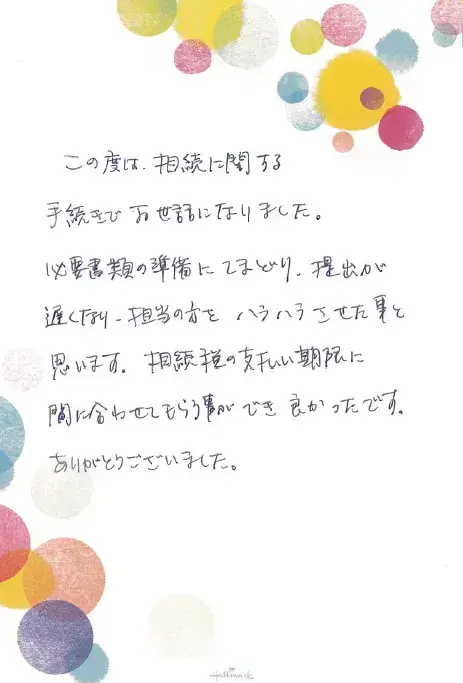 この度は、相続に関する
手続きび お世話になりました。
必要書類の準備にてまどり、提出が
遅くなり、担当の方を ハラハラさせた事と
思います。相続税の支払い期限に
間に合わせてもらう事ができ 良かったです。
ありがとうございました。
Hallmark